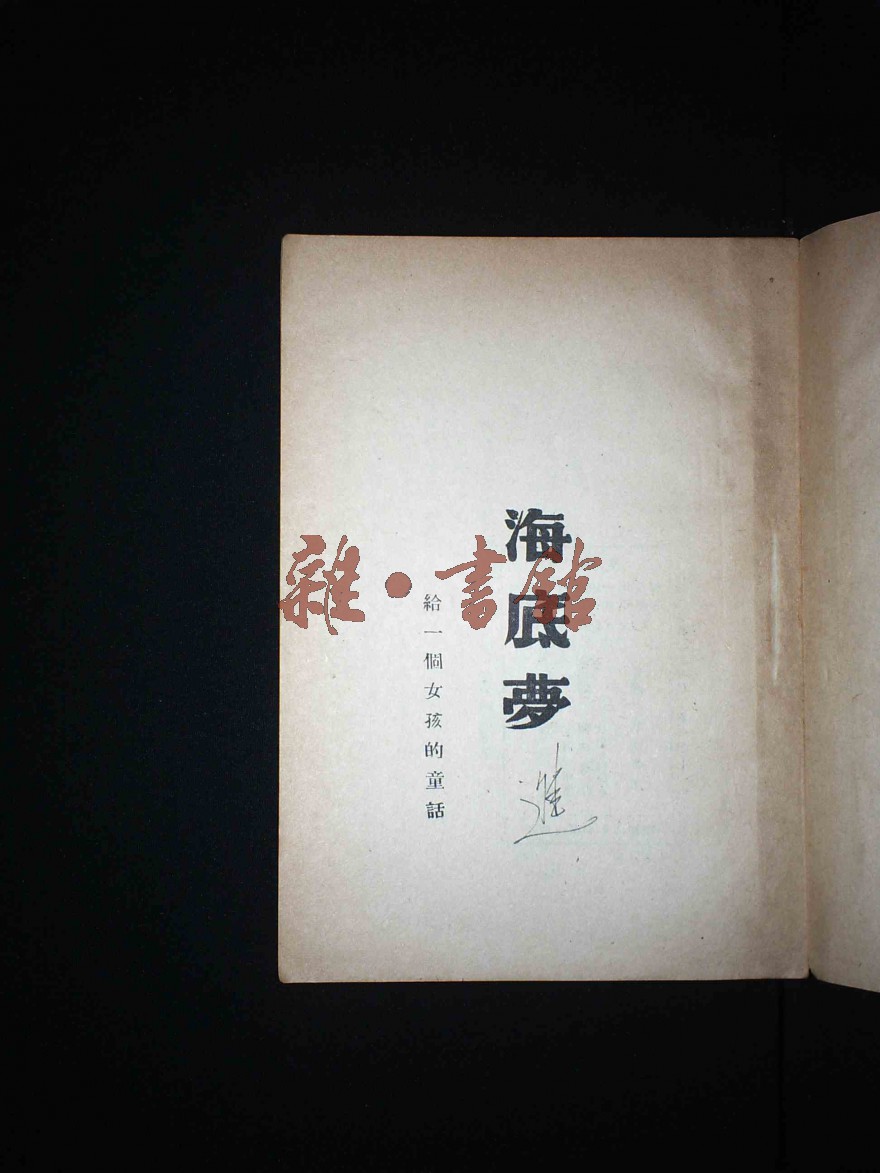 海底夢
進
給一個女孩的童話
雜·書館